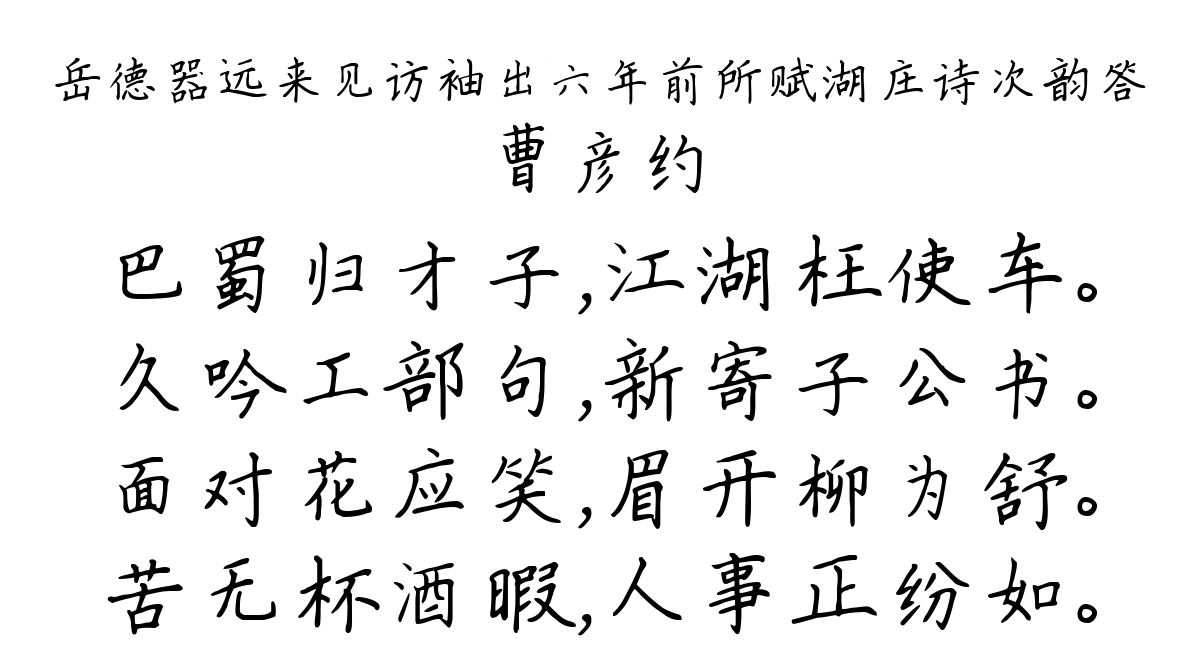 岳德器远来见访袖出六年前所赋湖庄诗次韵答
曹彦约
巴蜀归才子,江湖枉使车。
久吟工部句,新寄子公书。
面对花应笑,眉开柳为舒。
苦无杯酒暇,人事正纷如。